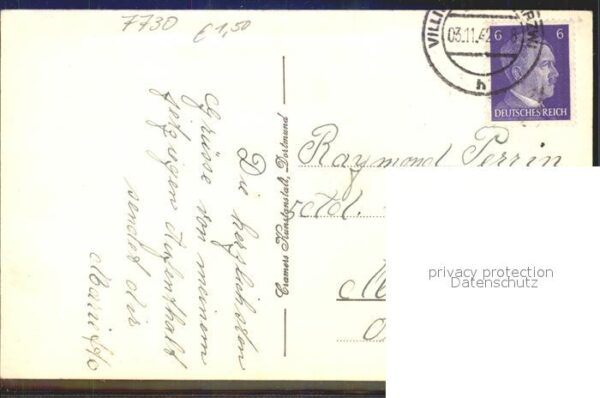 7730
€1,50
VILLI
03.11.42
h
6 6
DEUTSCHES REICH
Die herzlichsten
Grüsse von meinem
jetzigen Aufenthalt
sendet dir
Cramers Kunstanstalt, Dortmund
Raymond Perrin
privacy protection
Datenschutz